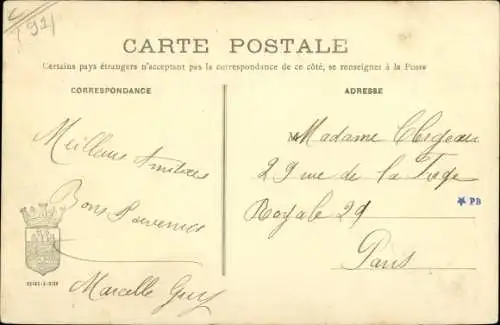 CARTE POSTALE
Certains pays étrangers n'acceptant pas la correspondance de ce côté, se renseigner à la Poste
CORRESPONDANCE
ADRESSE
Meilleurs Amitiées
Bons Souvenirs
Marcelle Guy
Madame
29 rue de la
Royale 29
Paris
PB